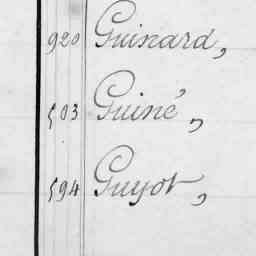 920 Guinard,
503 Guiné,
594 Guyot,